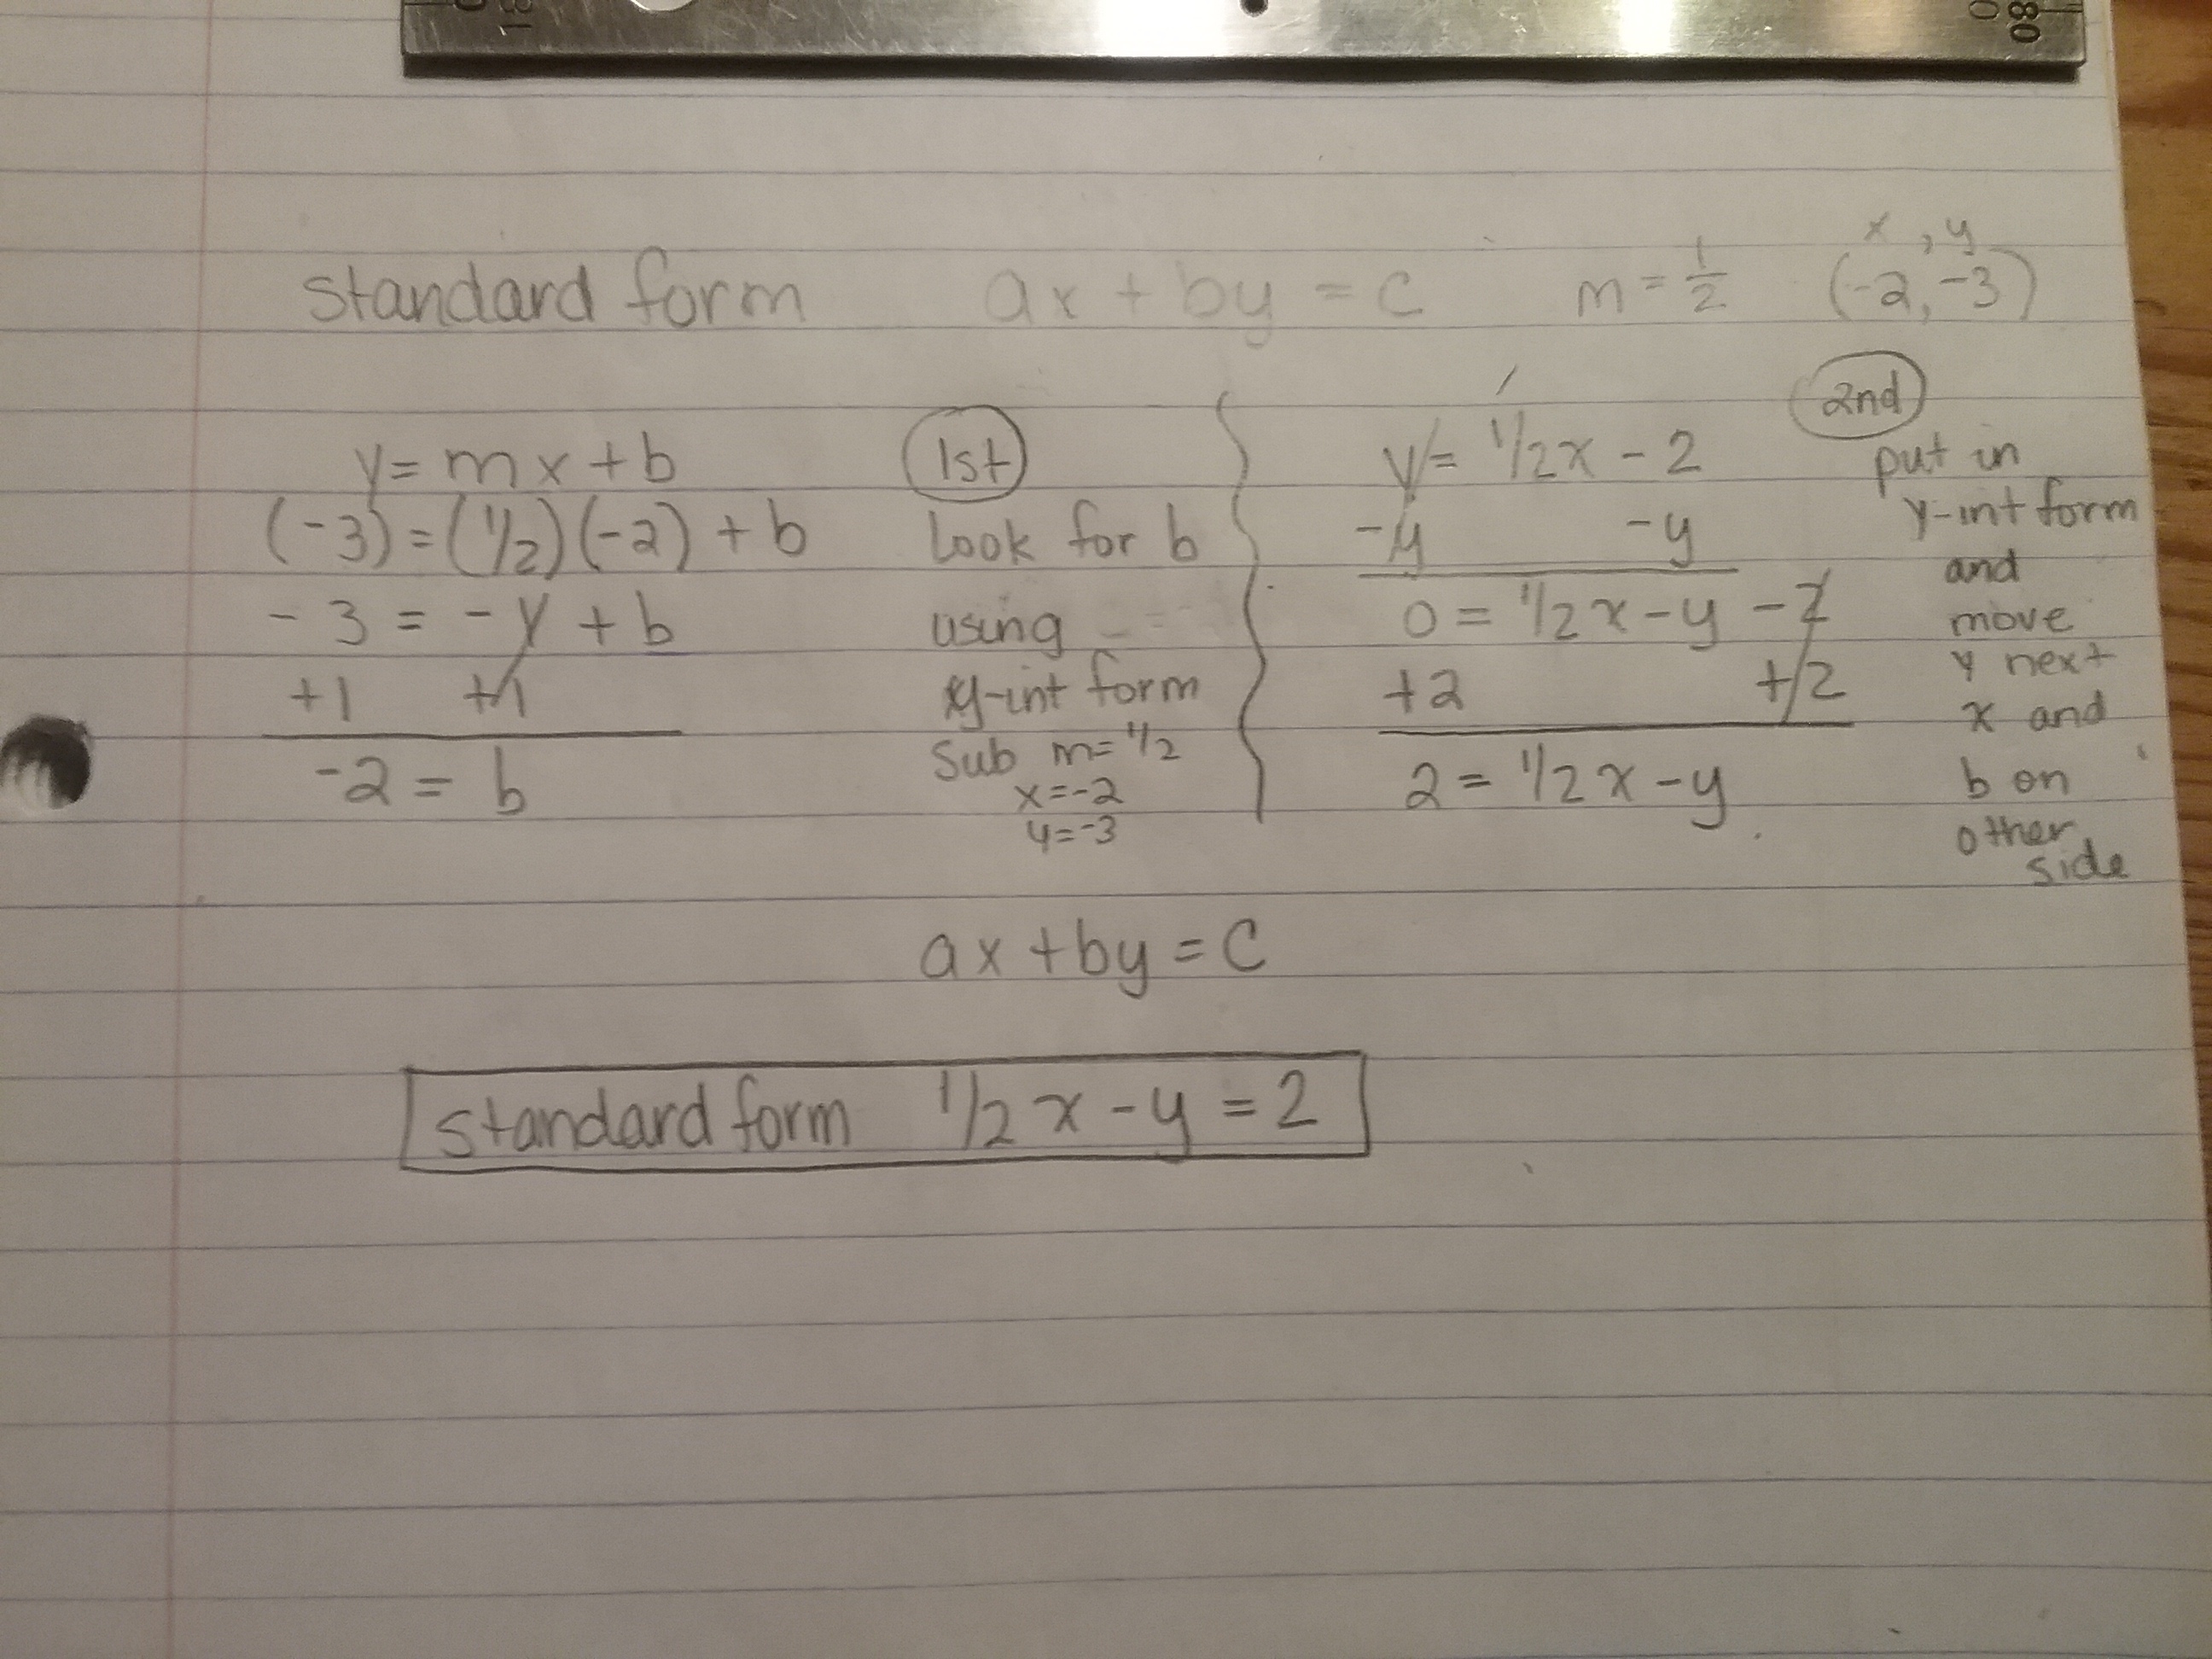 x , y
standard form ax + by = c m = 1/2 (-2, -3)
y = mx + b
(-3) = (1/2)(-2) + b
-3 = -1 + b
+1 +1
-2 = b
1st
Look for b
using
y-int form
Sub m = 1/2
x = -2
y = -3
y = 1/2x - 2
-y -y
0 = 1/2x - y - 2
+2 +2
2 = 1/2x - y
2nd
put in
y-int form
and
move
y next
x and
b on
other
side
ax + by = c
standard form 1/2 x - y = 2